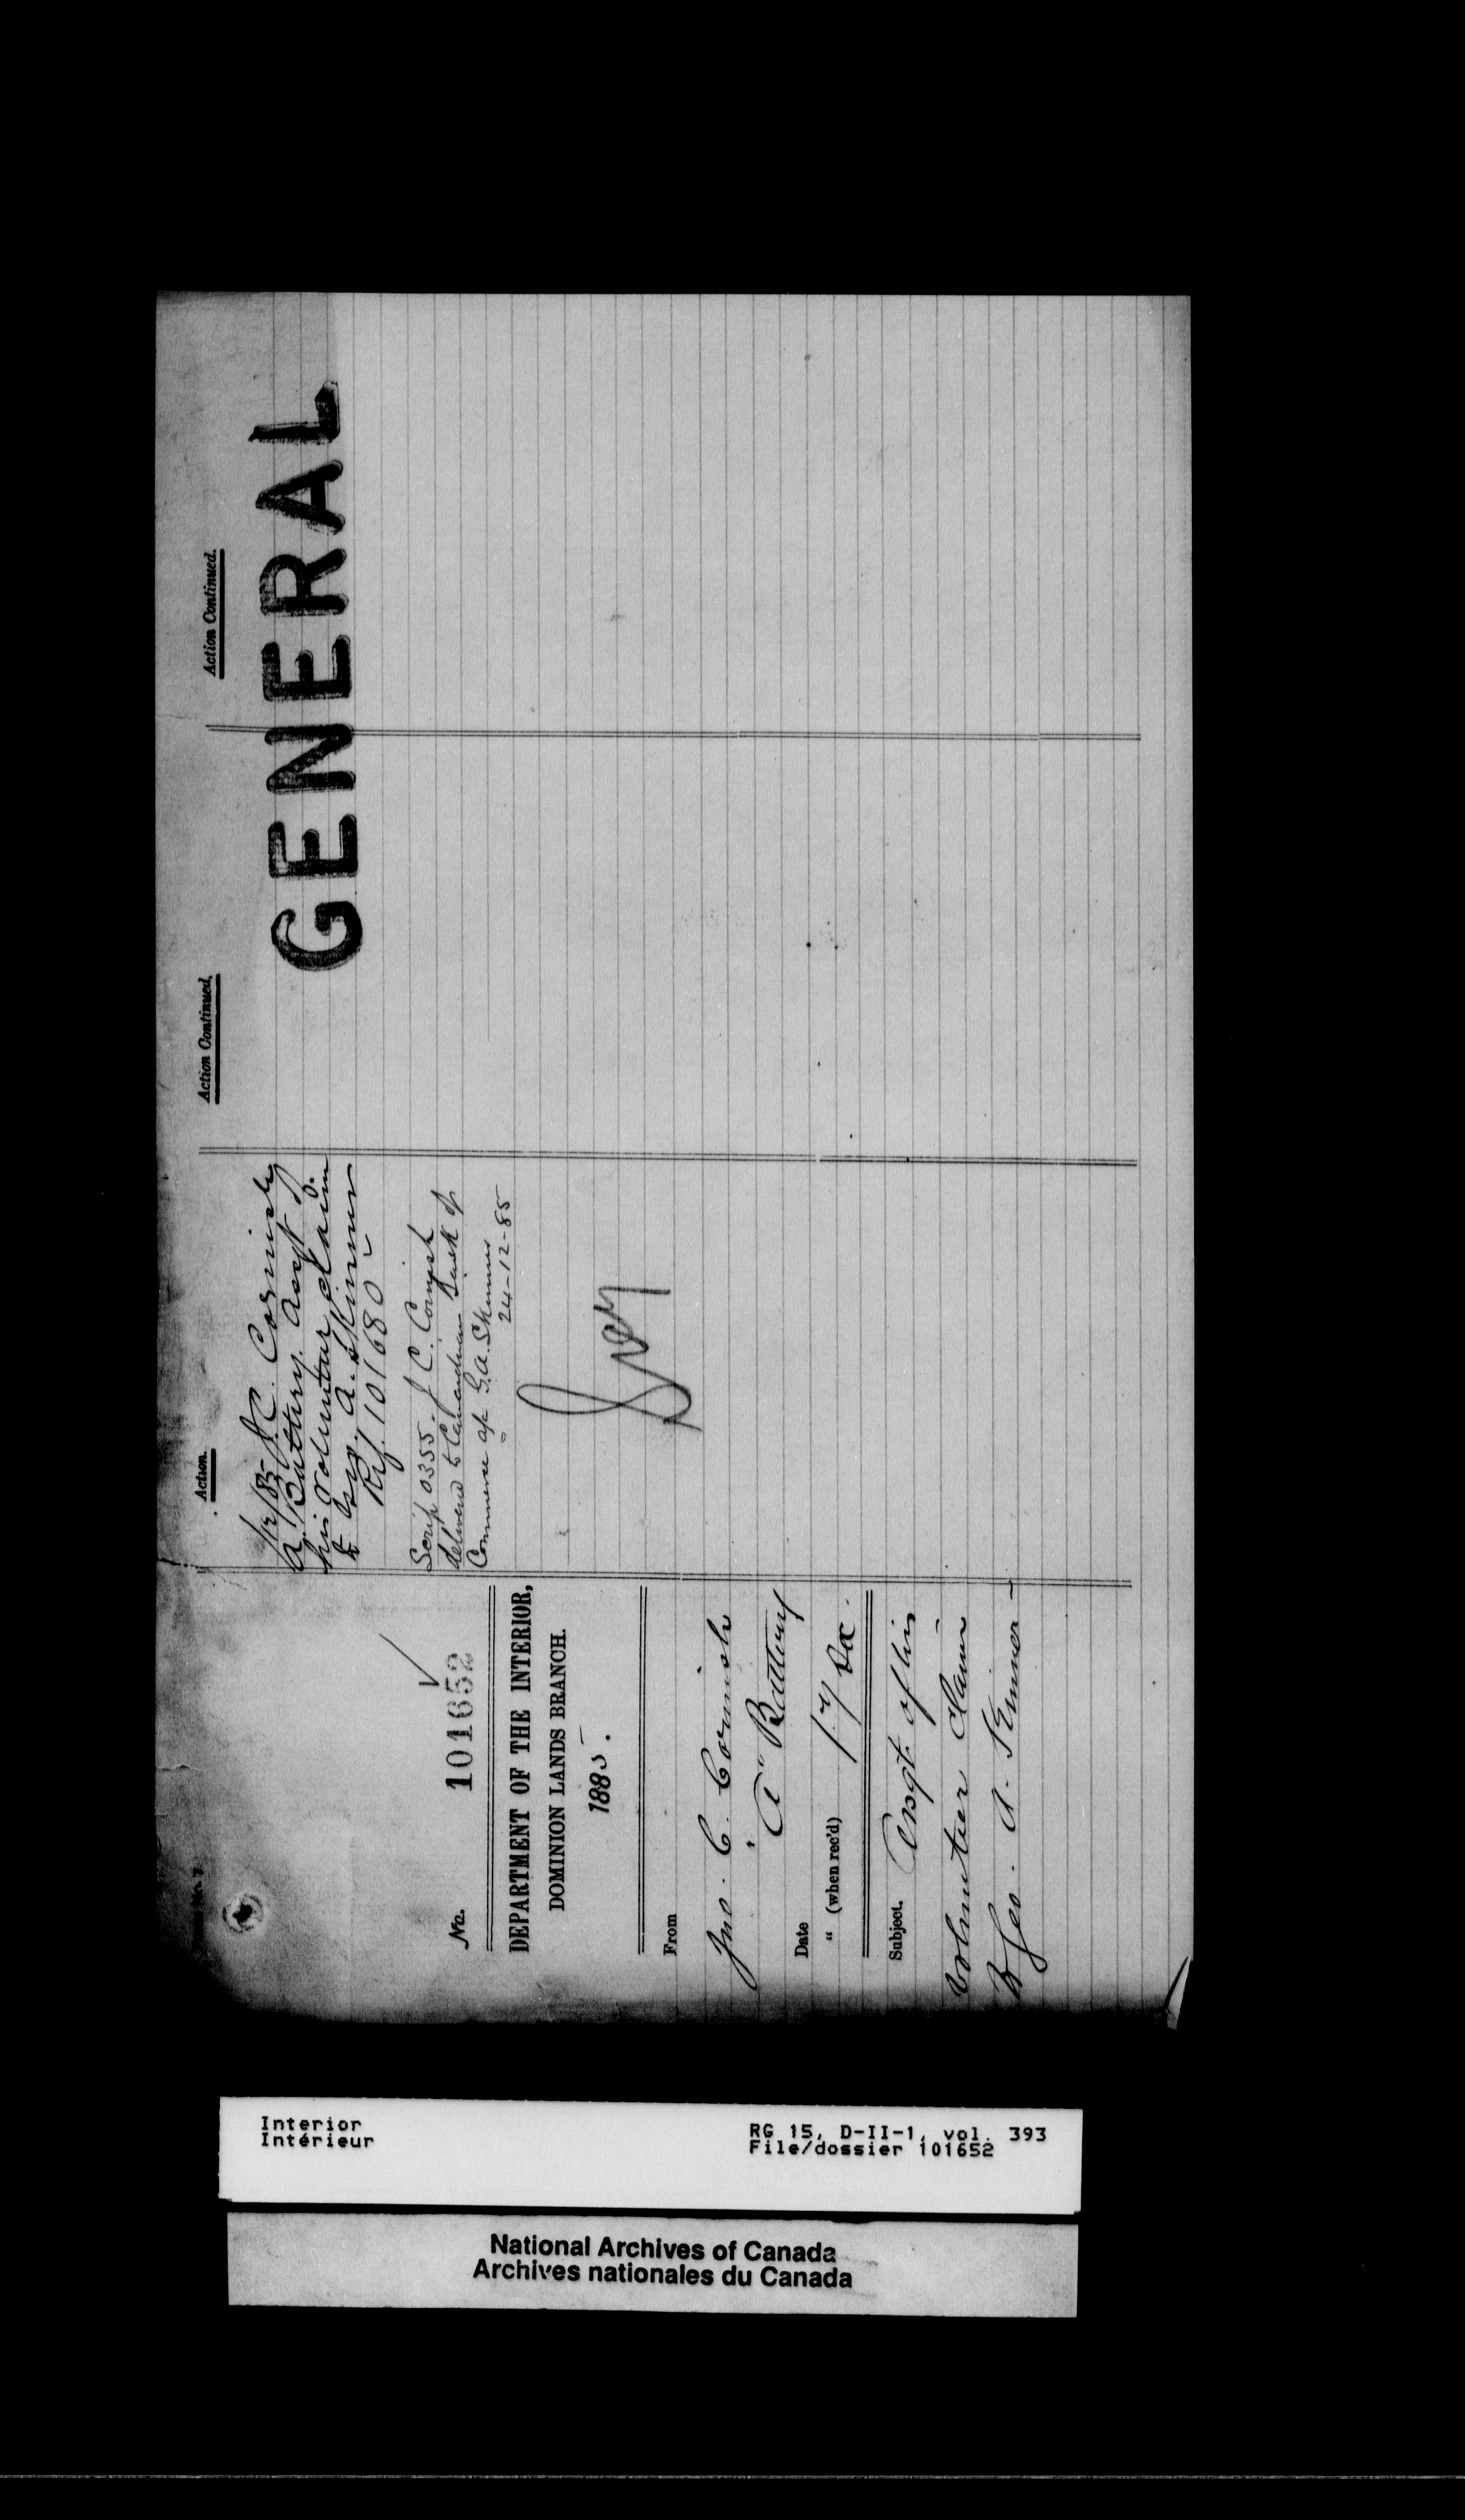 No. 101652
DEPARTMENT OF THE INTERIOR,
DOMINION LANDS BRANCH.
1885.
From
Jno. C. Cornish
"A" Battery
Date
" (when rec'd) 17 Dec.
Subject. Assgt. of his
volunteer claim
to Geo. A. Skinner
Action.
/12/85 J. C. Cornish
A. Battery. Assgt of
his volunteer claim
to Geo. A. Skinner
Ref. 101680
Scrip 0355. J C. Cornish
delivered to Canadian Bank of
Commerce a/c G. A. Skinner
24-12-85
Action Continued.
Action Continued.
GENERAL
Interior
Intérieur
RG 15, D-II-1, vol. 393
File/dossier 101652
National Archives of Canada
Archives nationales du Canada